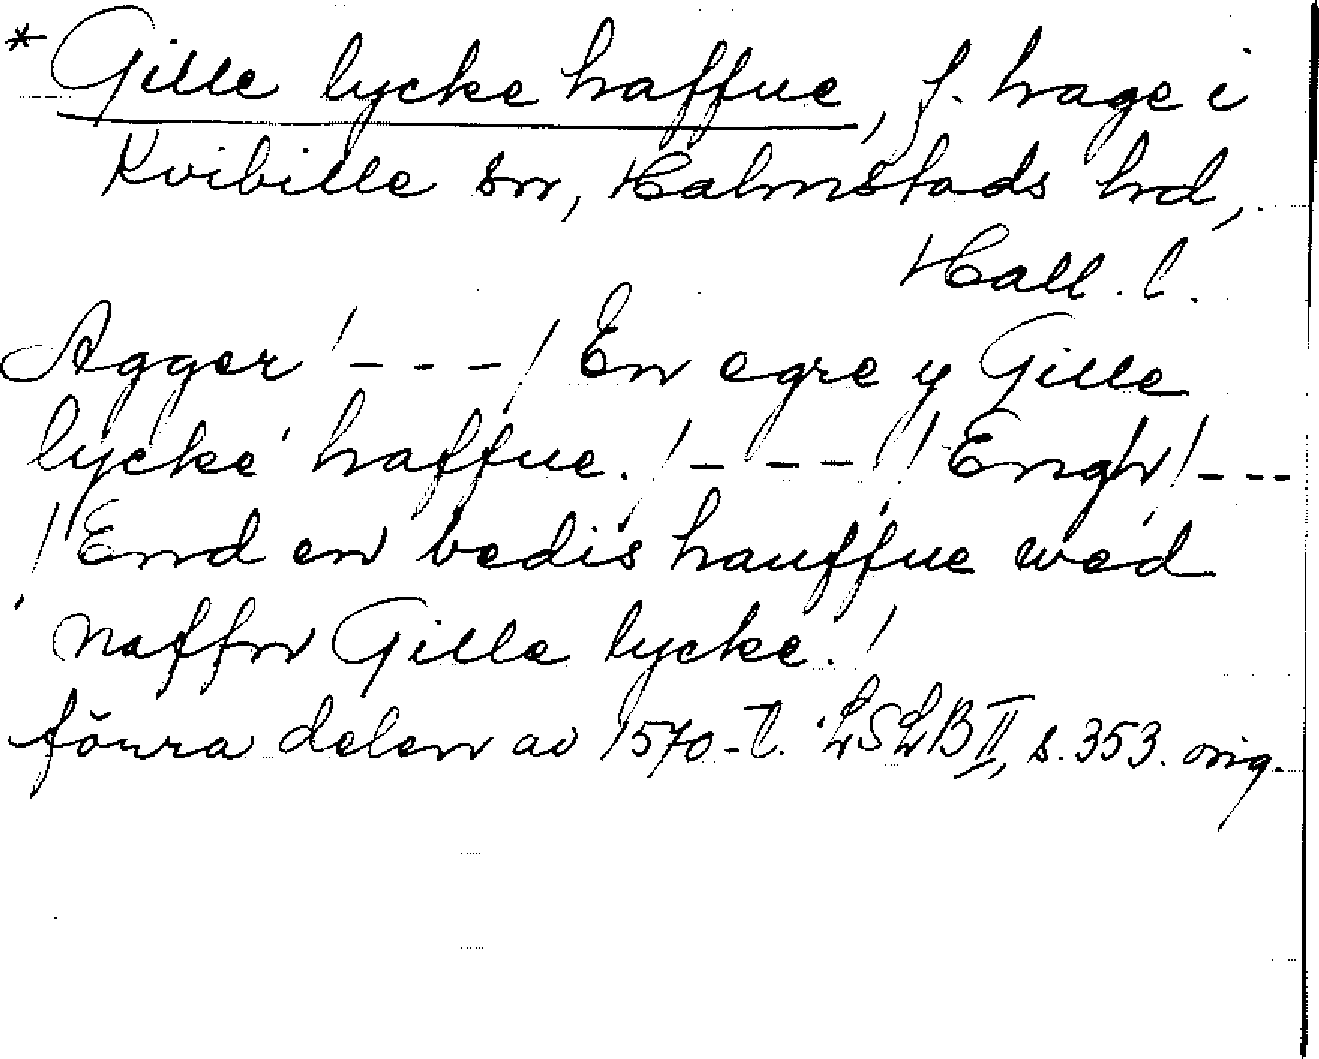 * Gille lycke haffue, f. hage i
Kvibille sn, Halmstads hd,
Hall. l.
Agger /---/ En egre y Gille
lycke haffue. /---/ Engh /---
/ End en bedis hauffue wed
naffn Gille lycke. /
förra delen av 1570-t. LSLB II, s. 353. orig.